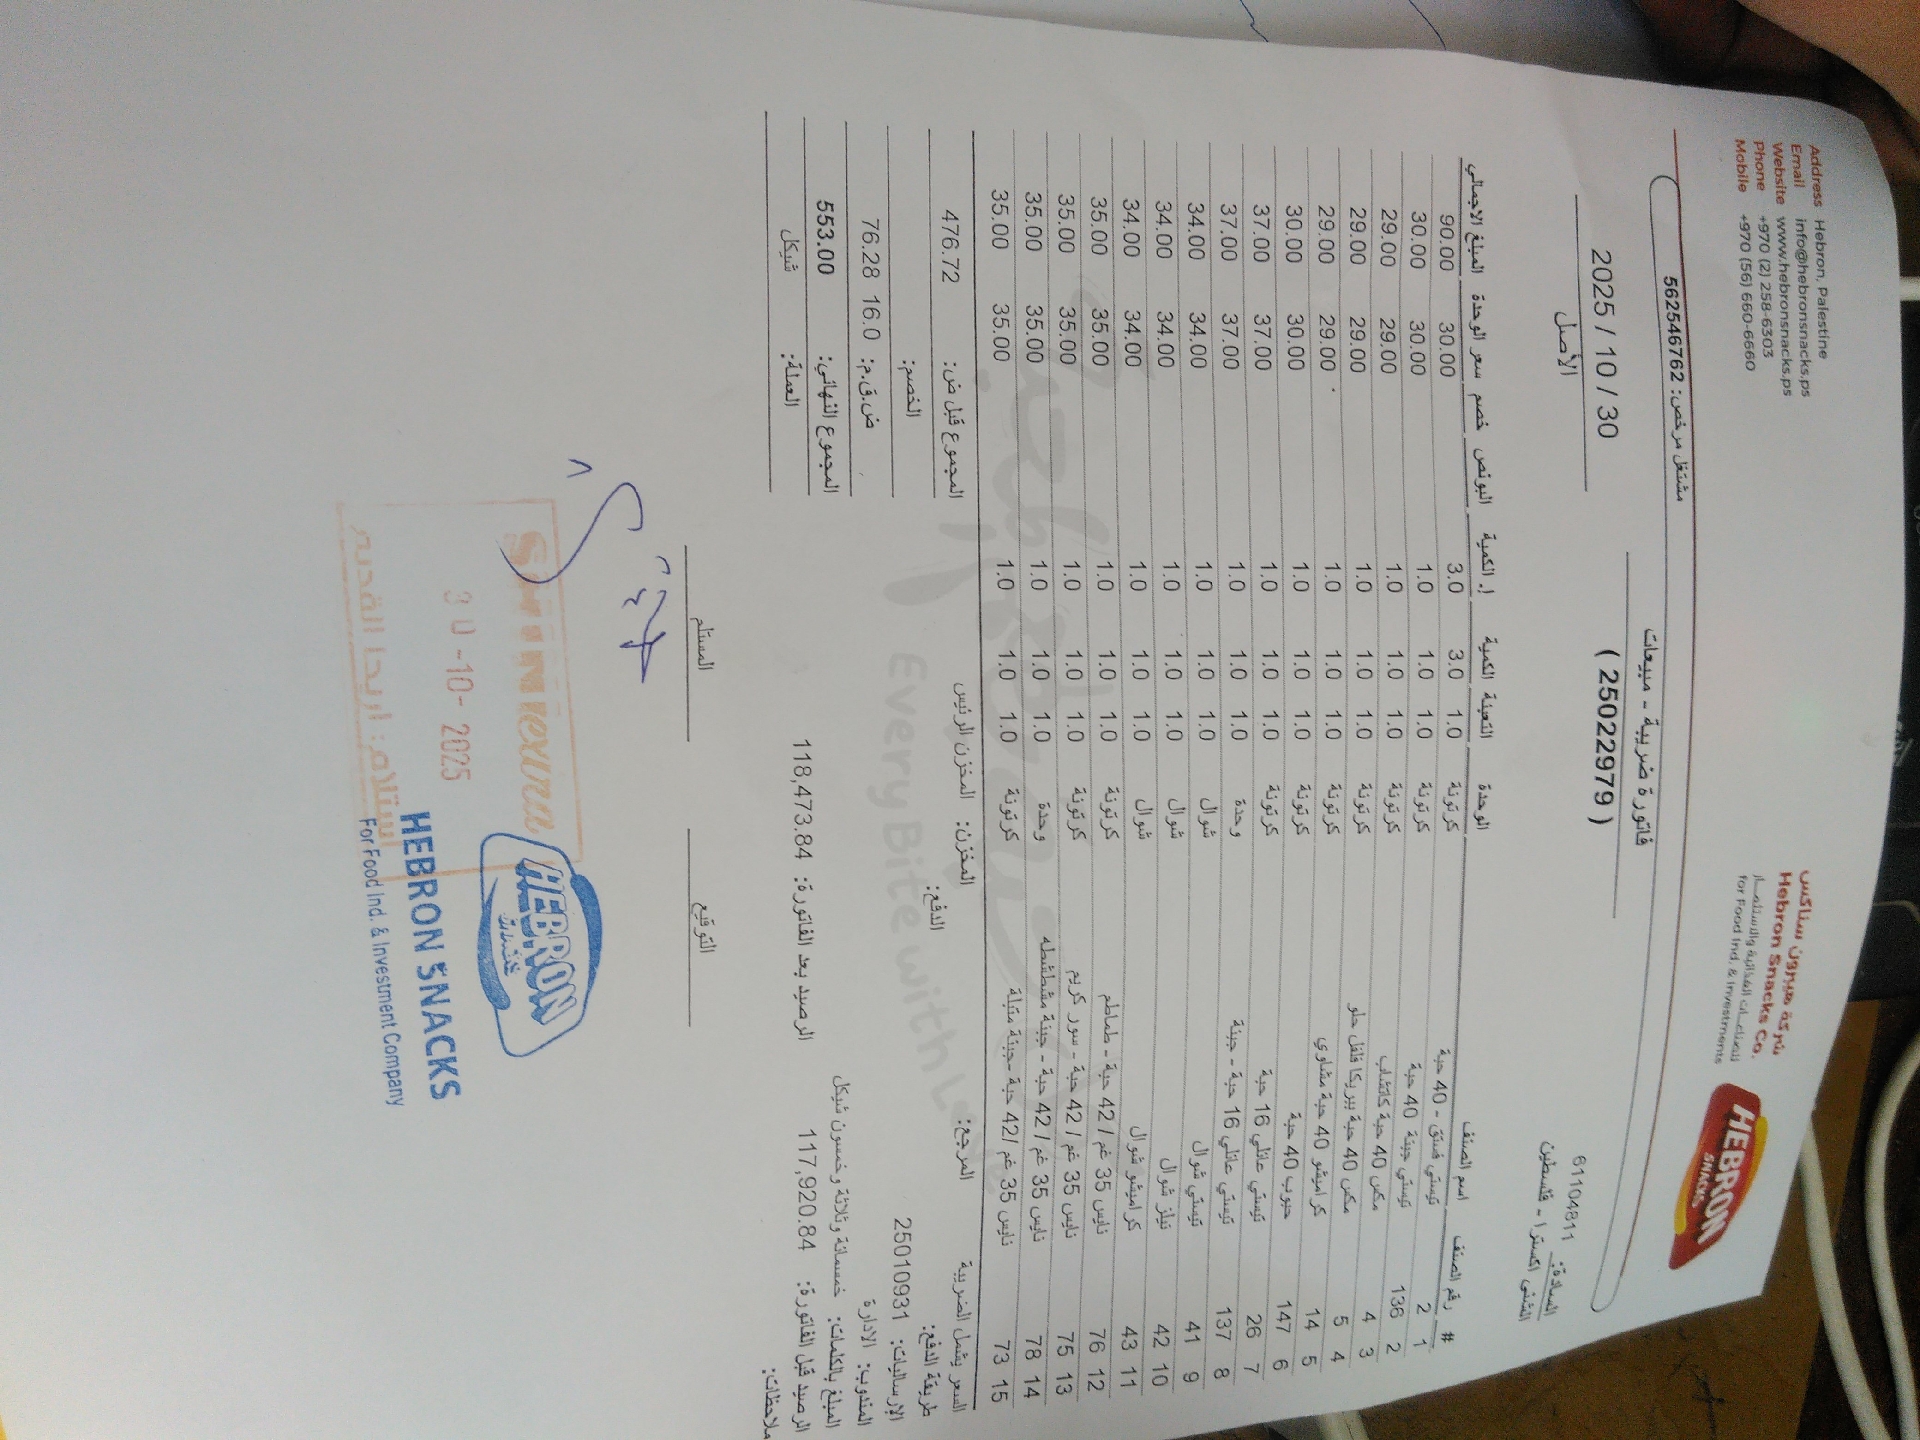 Address Hebron, Palestine
Email info@hebronsnacks.ps
Website www.hebronsnacks.ps
Phone +970 (2) 258-6303
Mobile +970 (56) 660-6660
شركة هيبرون سناكس
Hebron Snacks Co.
للصناعات الغذائية والاستثمار
for Food Ind. & Investments
HEBRON
SNACKS
مشتغل مرخص: 562546762
فاتورة ضريبية - مبيعات
( 25022979 )
2025 / 10 / 30
الأصل
السادة: 61104811
الشني اكسترا - فلسطين
# رقم الصنف اسم الصنف الوحدة التعبئة الكمية إ. الكمية البونص خصم سعر الوحدة المبلغ الاجمالي
1 2 تيستي فستق - 40 حبة كرتونة 1.0 3.0 3.0 30.00 90.00
2 136 تيستي جبنة 40 حبة كرتونة 1.0 1.0 1.0 30.00 30.00
3 4 مكس 40 حبة كاتشاب كرتونة 1.0 1.0 1.0 29.00 29.00
4 5 مكس 40 حبة بيريكا فلفل حلو كرتونة 1.0 1.0 1.0 29.00 29.00
5 14 كراميشو 40 حبة مشاوي كرتونة 1.0 1.0 1.0 29.00 29.00
6 147 حبوب 40 حبة كرتونة 1.0 1.0 1.0 30.00 30.00
7 26 تيستي عائلي 16 حبة كرتونة 1.0 1.0 1.0 37.00 37.00
8 137 تيستي عائلي 16 حبة - جبنة وحدة 1.0 1.0 1.0 37.00 37.00
9 41 تيستي شوال شوال 1.0 1.0 1.0 34.00 34.00
10 42 تيلز شوال شوال 1.0 1.0 1.0 34.00 34.00
11 43 كراميشو شوال شوال 1.0 1.0 1.0 34.00 34.00
12 76 نايس 35 غم / 42 حبة - طماطم كرتونة 1.0 1.0 1.0 35.00 35.00
13 75 نايس 35 غم / 42 حبة - سور كريم كرتونة 1.0 1.0 1.0 35.00 35.00
14 78 نايس 35 غم / 42 حبة - جبنة مشطشطه وحدة 1.0 1.0 1.0 35.00 35.00
15 73 نايس 35 غم / 42 حبة - جبنة متبلة كرتونة 1.0 1.0 1.0 35.00 35.00
Every Bite with Love
السعر يشمل الضريبة المرجع: المخزن: المخزن الرئيس المجموع قبل ض: 476.72
طريقة الدفع: الدفع: الخصم:
الإرساليات: 25010931
المندوب: الادارة ض.ق.م: 16.0 76.28
المبلغ بالكلمات: خمسمائة وثلاثة وخمسون شيكل المجموع النهائي: 553.00
الرصيد قبل الفاتورة: 117,920.84 الرصيد بعد الفاتورة: 118,473.84 العملة: شيكل
ملاحظات:
التوقيع المستلم
HEBRON
HEBRON SNACKS
For Food Ind. & Investment Company
30 -10- 2025